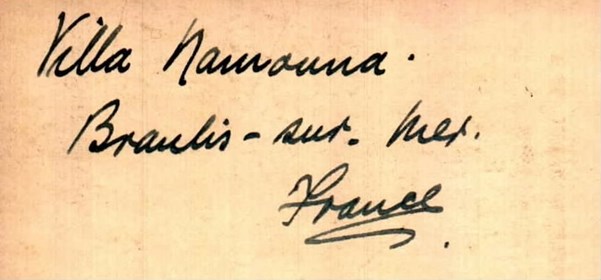 Villa Namouna.
Braulis-sur-Mer.
France.